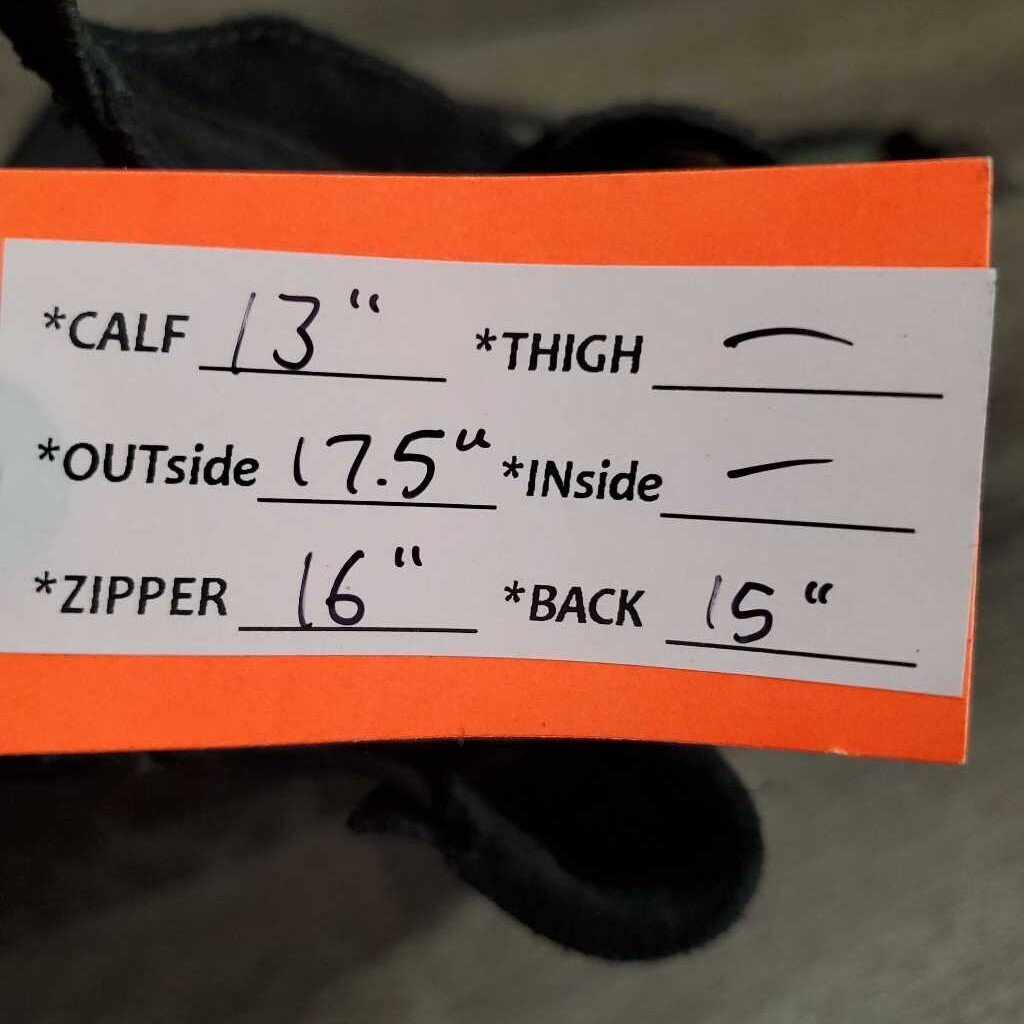 *CALF 13" *THIGH —
*OUTside 17.5" *INside —
*ZIPPER 16" *BACK 15"